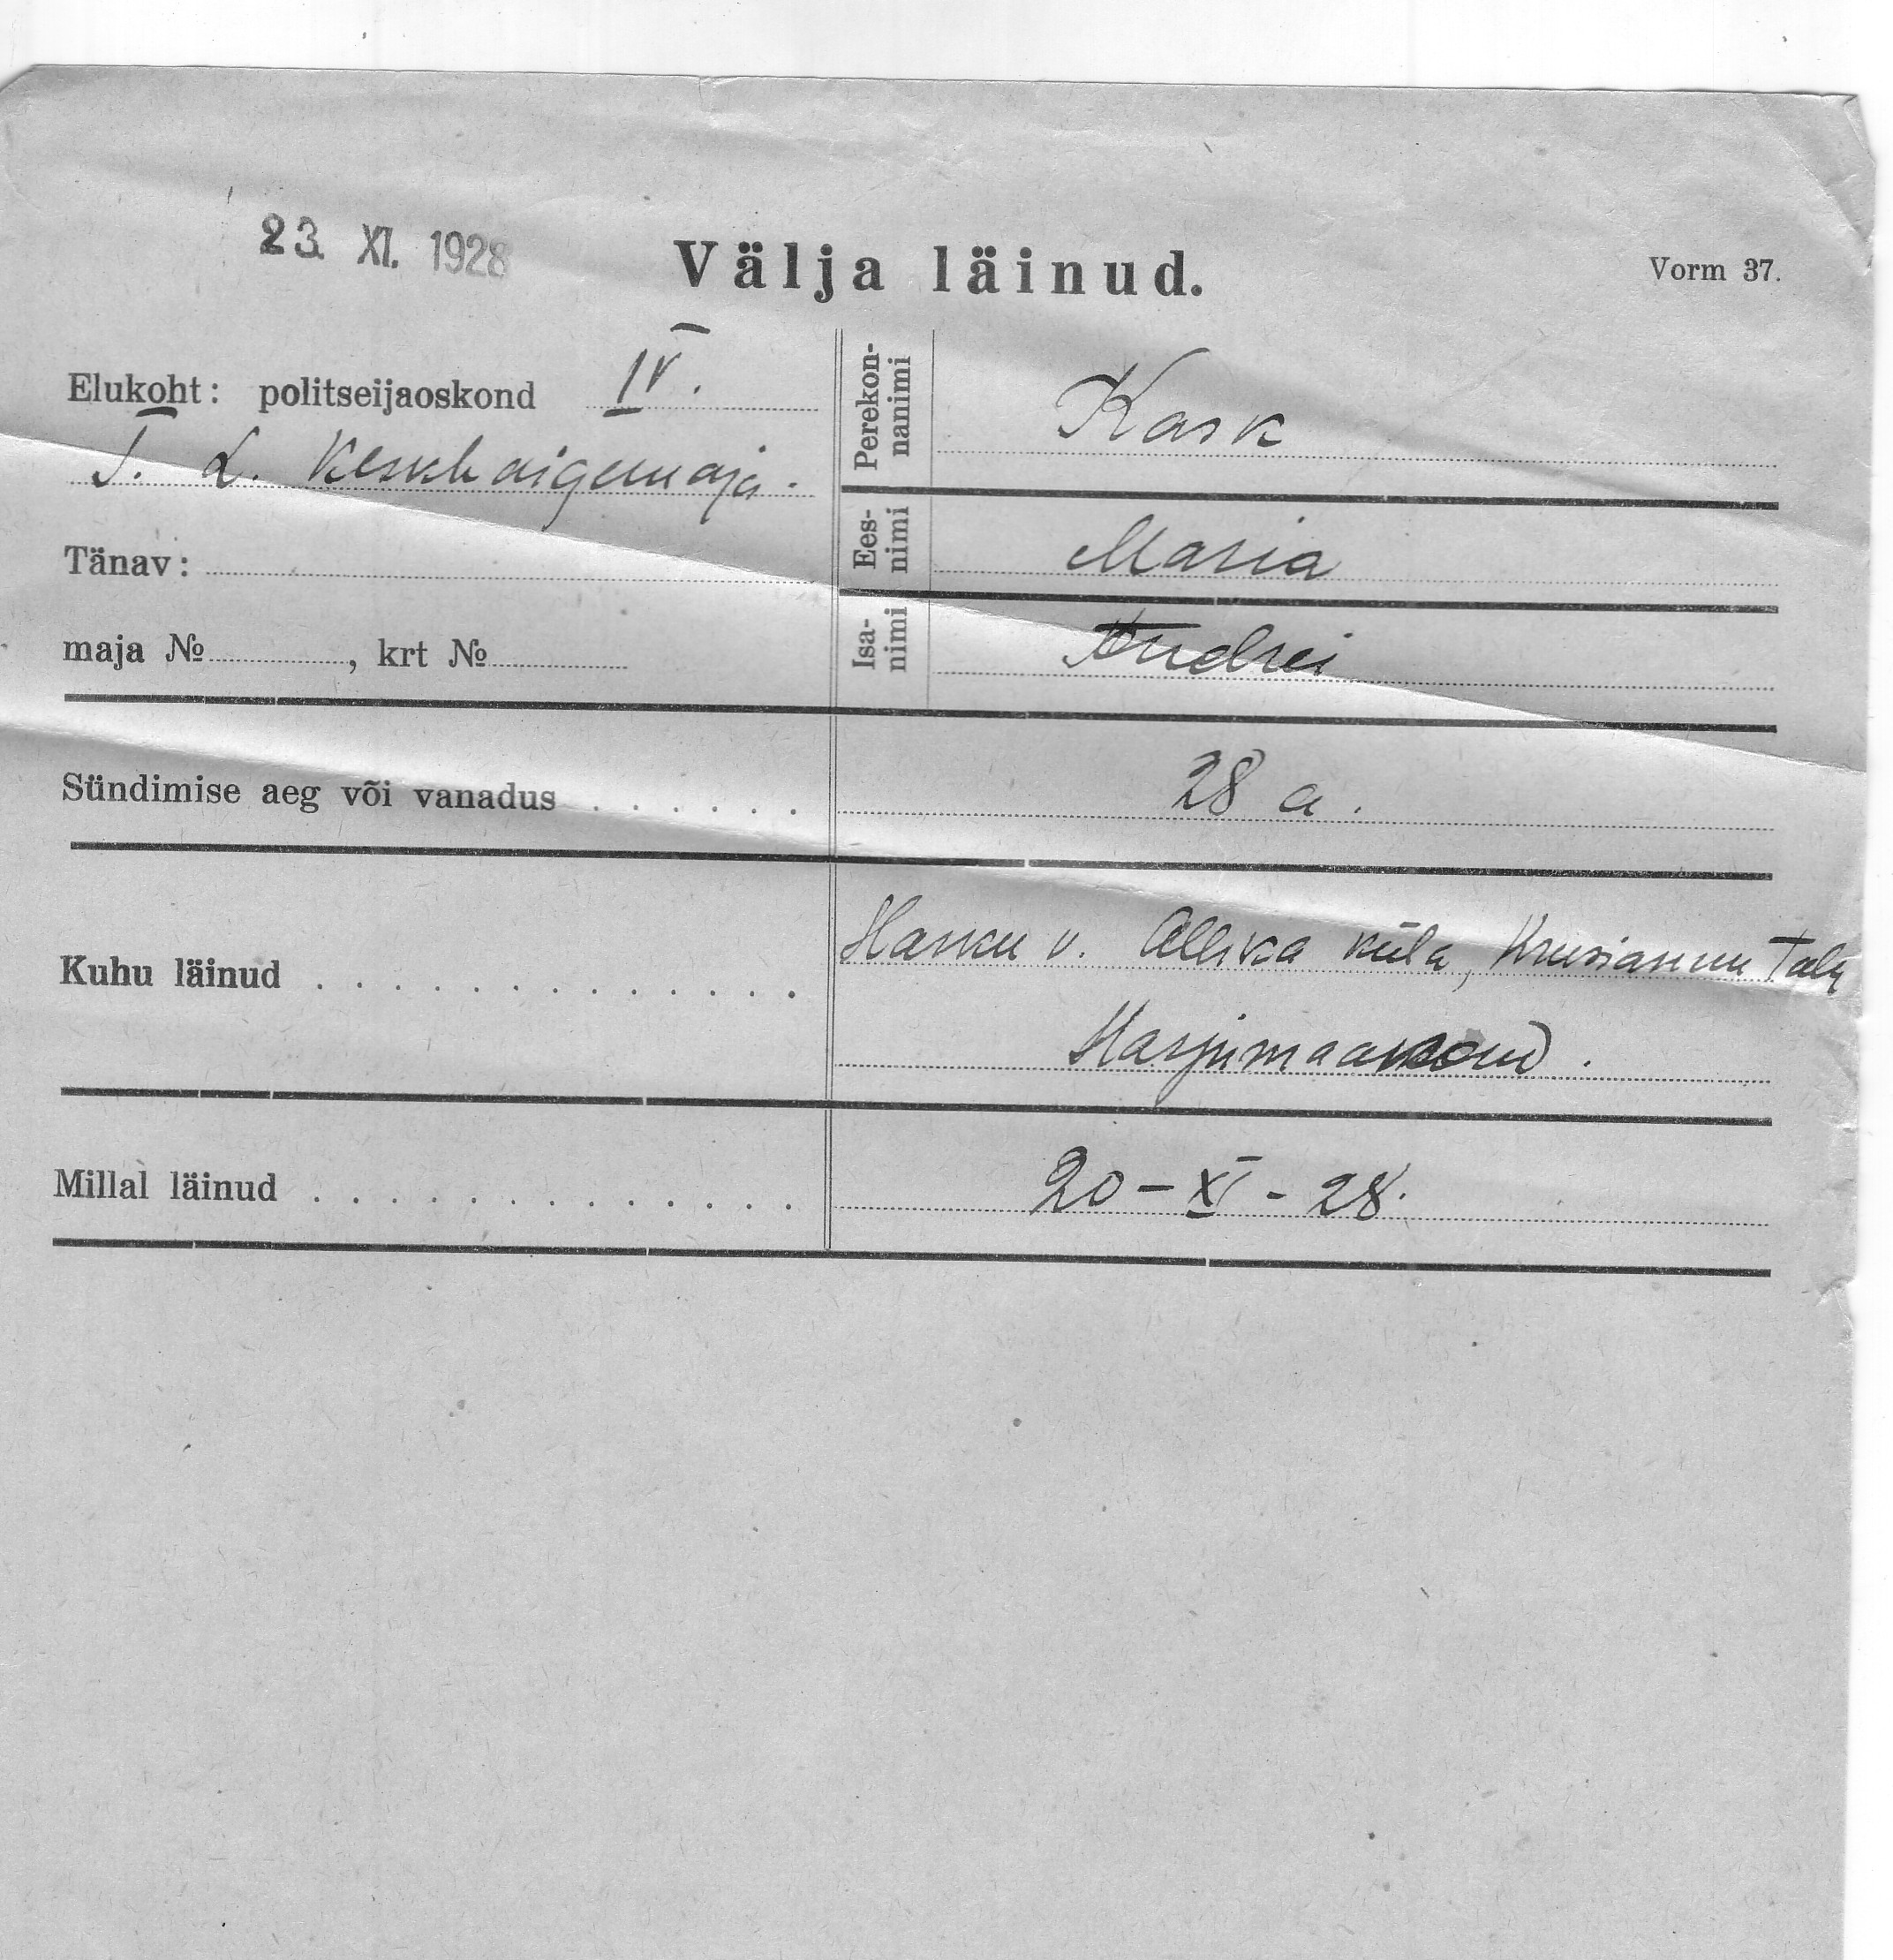 23. XI. 1928
Välja läinud.
Vorm 37.
Elukoht: politseijaoskond IV.
T. L. Keskhaigemaja.
Tänav:
maja №, krt №
Perekon-
nanimi
Kask
Ees-
nimi
Maria
Isa-
nimi
Andrei
Sündimise aeg või vanadus
28 a.
Kuhu läinud
Harku v. Allika küla, Talu
Harjumaakond.
Millal läinud
20-XI-28.